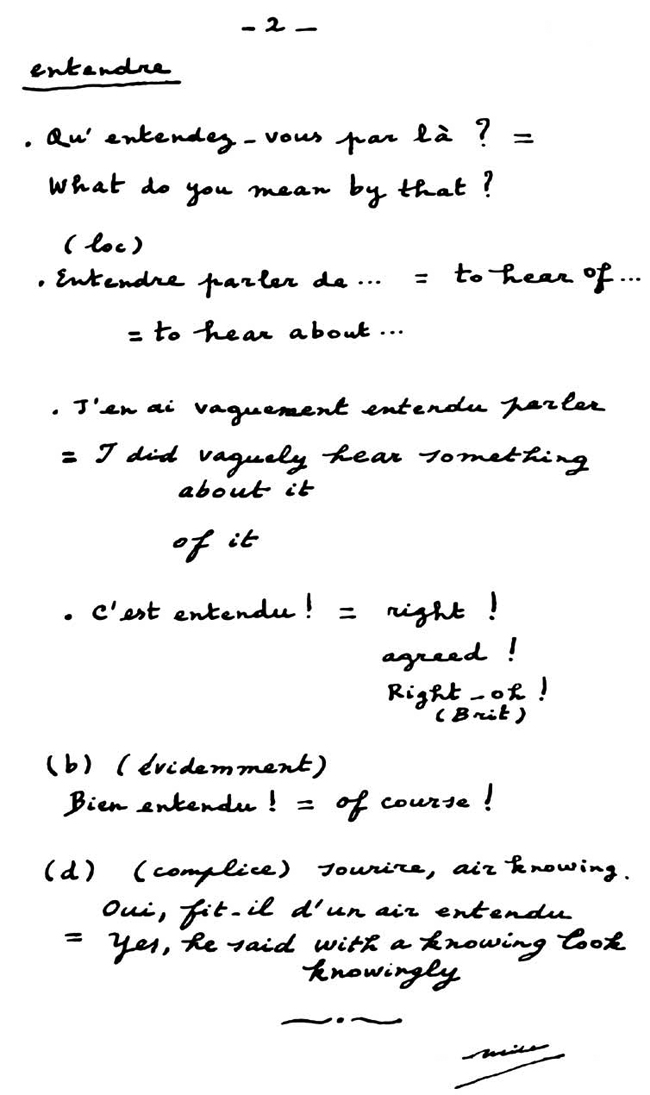 - 2 -
entendre
. Qu'entendez-vous par là ? =
What do you mean by that ?
(loc)
. Entendre parler de ... = to hear of ...
= to hear about ...
. J'en ai vaguement entendu parler
= I did vaguely hear something
about it
of it
. C'est entendu ! = right !
agreed !
Right-oh !
(Brit)
(b) (évidemment)
Bien entendu ! = of course !
(d) (complice) sourire, air knowing.
Oui, fit-il d'un air entendu
= Yes, he said with a knowing look
knowingly